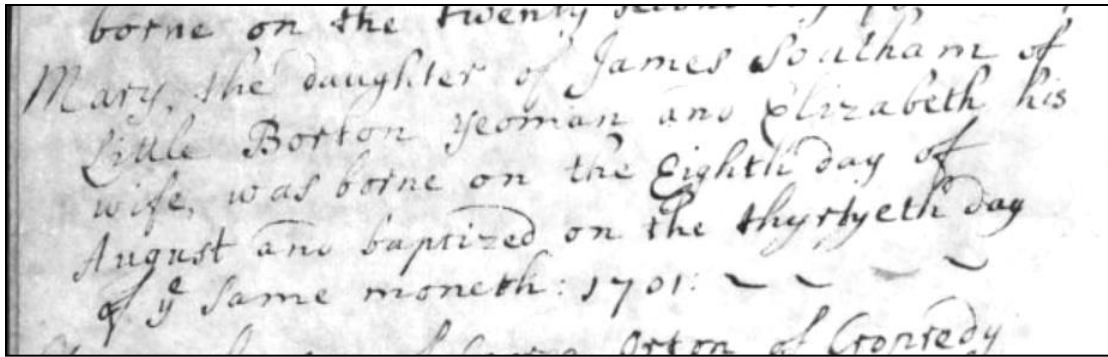 borne on the twenty second day
Mary, the daughter of James Southam of
Little Borton yeoman and Elizabeth his
wife, was borne on the Eighth day of
August and baptized on the thyrtyeth day
of yͤ same moneth: 1701: ~ ~ ~ ~
of Orton of Cropredy